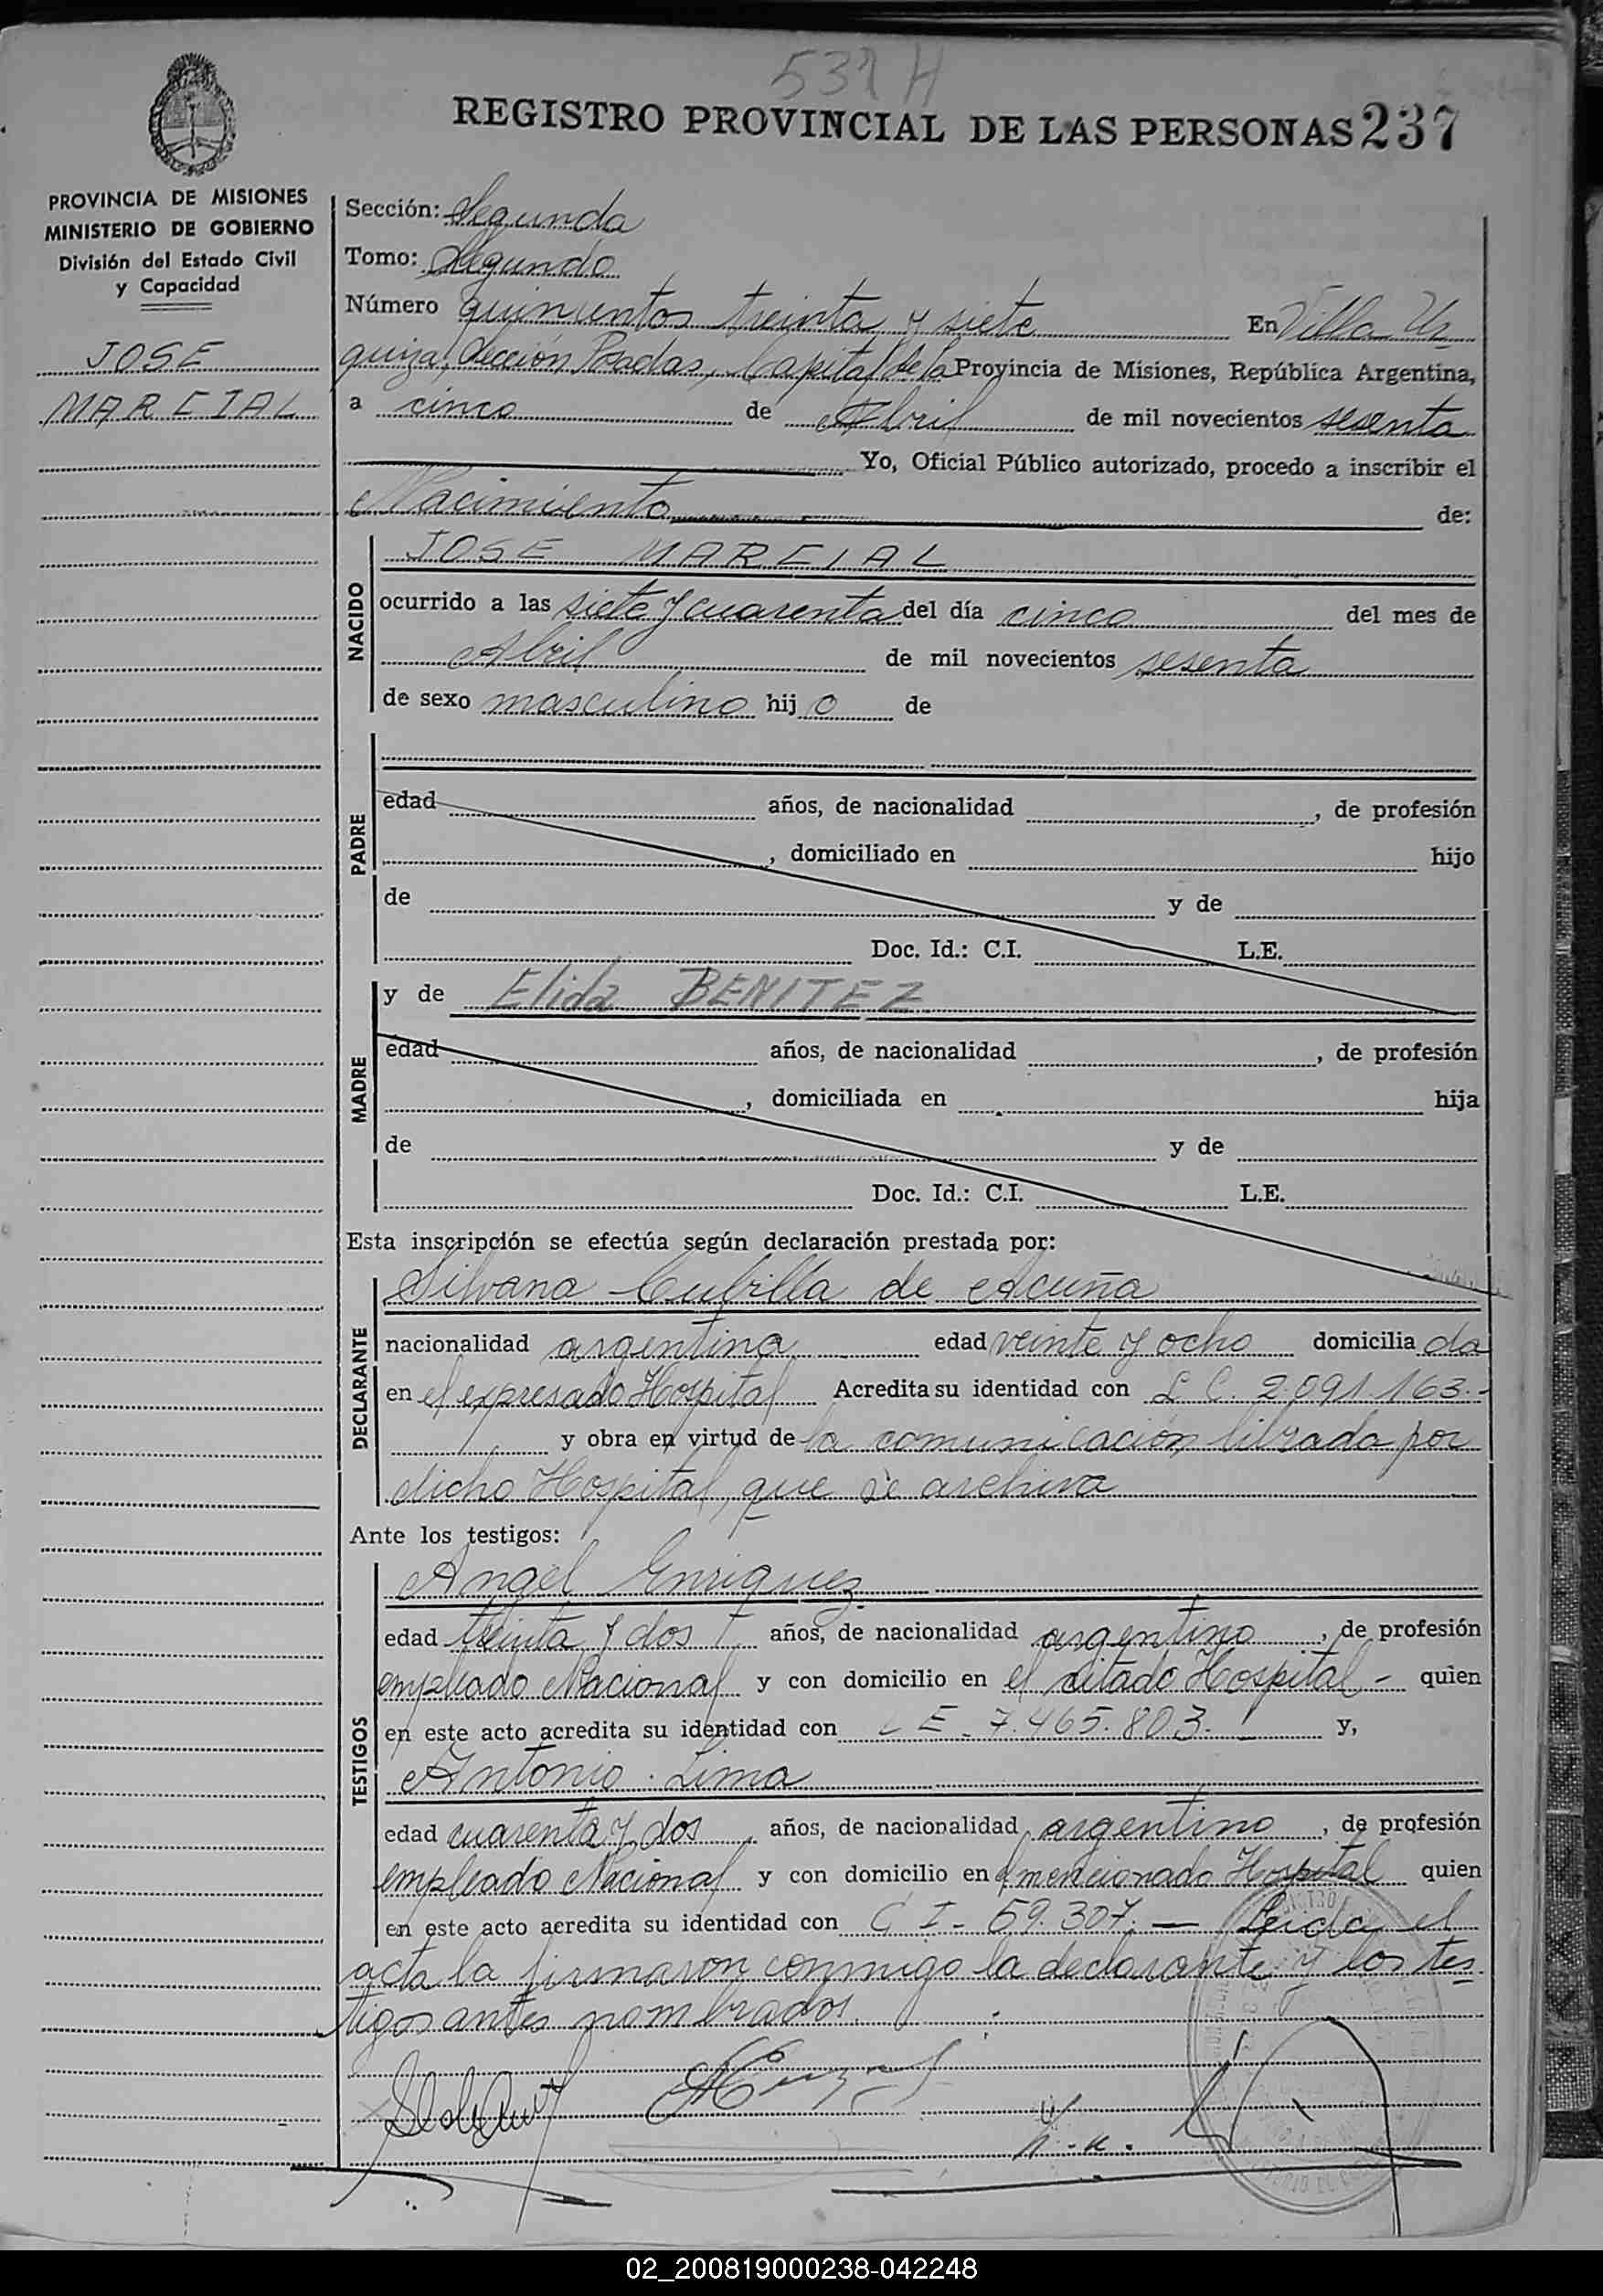 REGISTRO PROVINCIAL DE LAS PERSONAS 237
PROVINCIA DE MISIONES
MINISTERIO DE GOBIERNO
División del Estado Civil
y Capacidad
JOSE
MARCIAL
Sección: Segunda
Tomo: Segundo
Número quinientos treinta y siete En Villa Ur
quiza, Sección Posadas, Capital de la Provincia de Misiones, República Argentina,
a cinco de Abril de mil novecientos sesenta
Yo, Oficial Público autorizado, procedo a inscribir el
Nacimiento de:
NACIDO
JOSE MARCIAL
ocurrido a las siete y cuarenta del día cinco del mes de
Abril de mil novecientos sesenta
de sexo masculino hijo de
PADRE
edad años, de nacionalidad , de profesión
, domiciliado en hijo
de y de
Doc. Id.: C.I. L.E.
MADRE
y de Elida BENITEZ
edad años, de nacionalidad , de profesión
, domiciliada en hija
de y de
Doc. Id.: C.I. L.E.
Esta inscripción se efectúa según declaración prestada por:
DECLARANTE
Silvana Cubilla de Acuña
nacionalidad argentina edad veinte y ocho domiciliada
en el expresado Hospital Acredita su identidad con L C. 2.091.163.-
y obra en virtud de la comunicación librada por
dicho Hospital, que se archiva
Ante los testigos:
TESTIGOS
Angel Enriquez
edad treinta y dos años, de nacionalidad argentino, de profesión
empleado Nacional y con domicilio en el citado Hospital - quien
en este acto acredita su identidad con L E - 7.465.803. y,
Antonio Lima
edad cuarenta y dos, años, de nacionalidad argentino, de profesión
empleado Nacional y con domicilio en el mencionado Hospital quien
en este acto acredita su identidad con C I - 59.307. — Leida el
acta la firmaron conmigo la declarante y los tes
tigos antes nombrados.
02_200819000238-042248